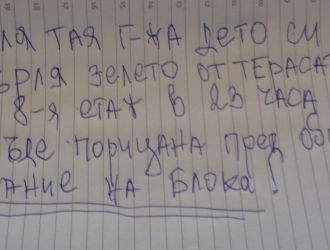 ля тая г-жа дето си
ърля зелето от тераса
8-я етаж в 23 часа
ъде порицана пред об
ание на блока!